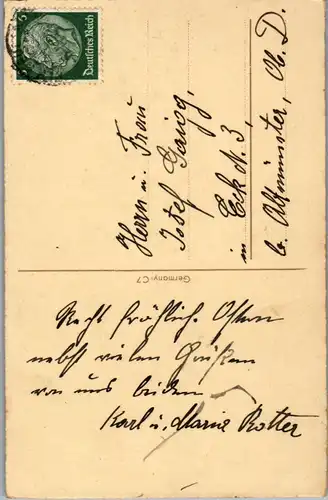 Deutsches Reich
5 5
Herrn u. Frau
Josef
in Eck N. 3,
b. Altmünster, Ob. D.
Germany-C7
Recht fröhliche Ostern
nebst vielen Grüßen
von uns beiden
Karl u. Marie Rotter